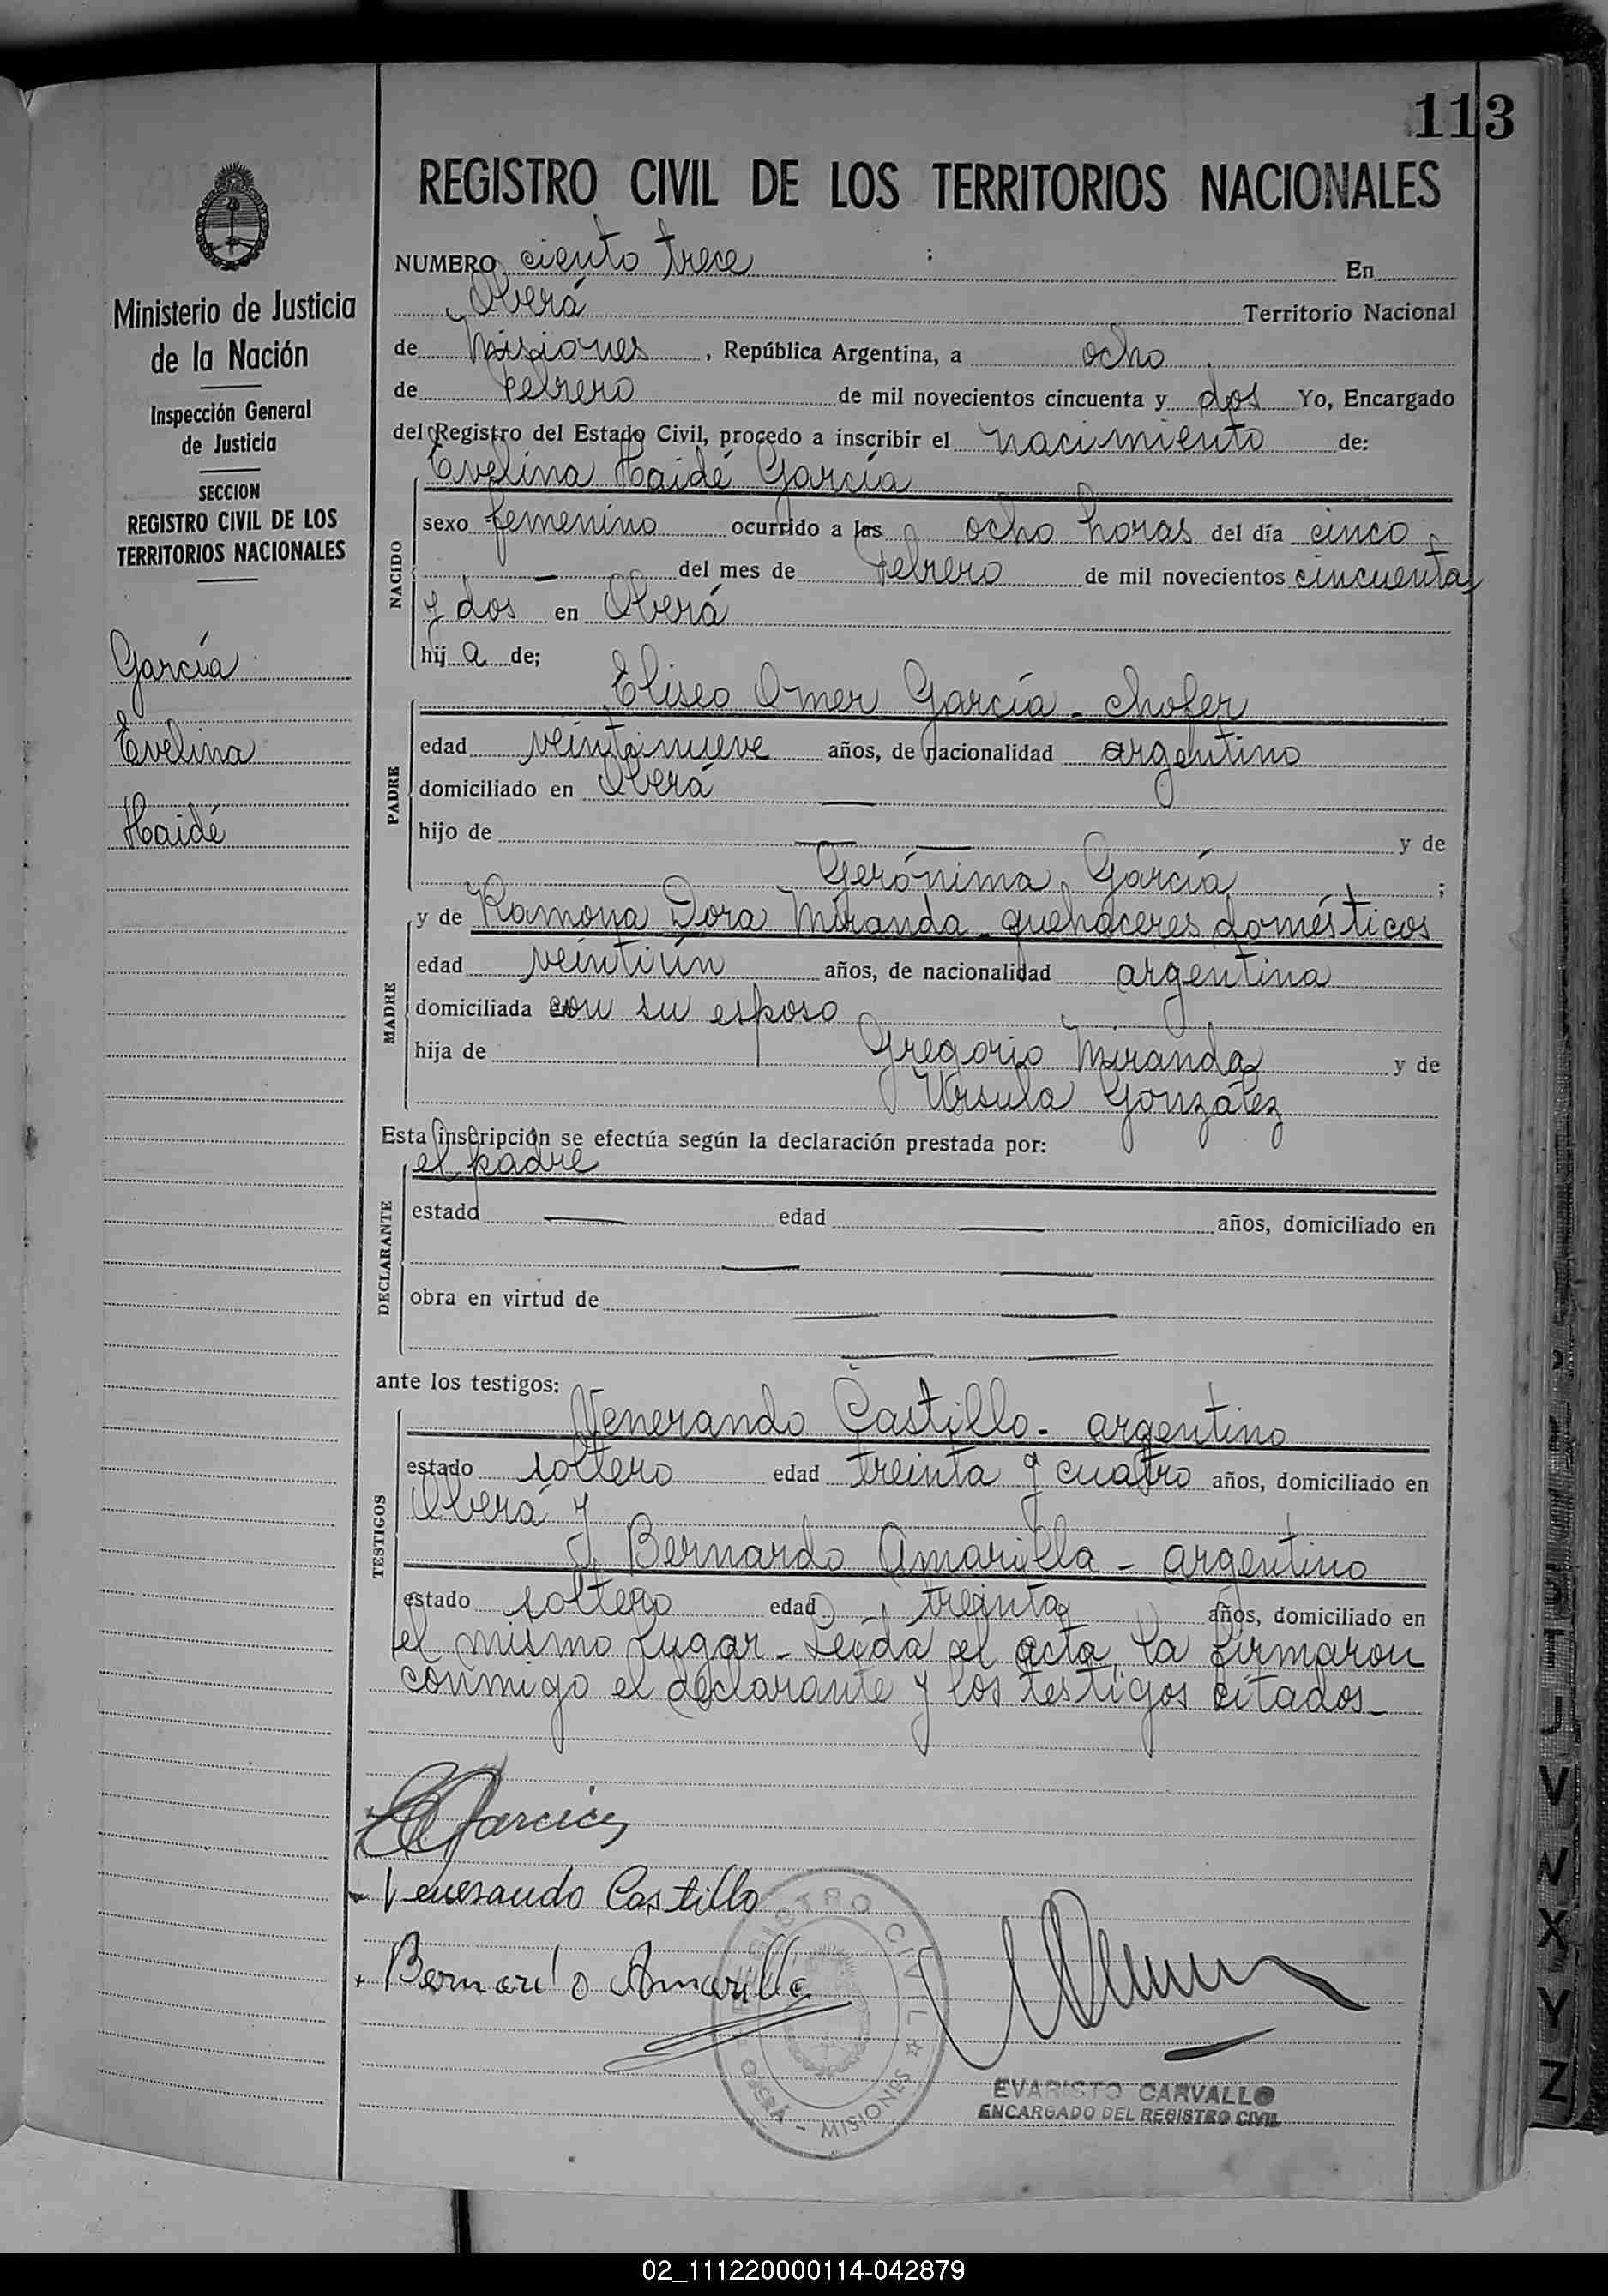 113
REGISTRO CIVIL DE LOS TERRITORIOS NACIONALES
Ministerio de Justicia
de la Nación
Inspección General
de Justicia
SECCION
REGISTRO CIVIL DE LOS
TERRITORIOS NACIONALES
García
Evelina
Haidé
NUMERO ciento trece En
Oberá Territorio Nacional
de Misiones, República Argentina, a ocho
de Febrero de mil novecientos cincuenta y dos Yo, Encargado
del Registro del Estado Civil, procedo a inscribir el nacimiento de:
Evelina Haidé García
NACIDO
sexo femenino ocurrido a las ocho horas del día cinco
— del mes de Febrero de mil novecientos cincuenta
y dos en Oberá
hij a de;
Eliseo Omer García - chofer
PADRE
edad veintinueve años, de nacionalidad argentino
domiciliado en Oberá —
hijo de — — y de
Gerónima García ;
y de Ramona Dora Miranda - quehaceres domésticos
MADRE
edad veintiún años, de nacionalidad argentina
domiciliada con su esposo
hija de Gregorio Miranda y de
Ursula González
Esta inscripción se efectúa según la declaración prestada por:
el padre
DECLARANTE
estado — edad — años, domiciliado en
— —
obra en virtud de — —
— —
ante los testigos:
Venerando Castillo - argentino
TESTIGOS
estado soltero edad treinta y cuatro años, domiciliado en
Oberá y
Bernardo Amarilla - argentino
estado soltero edad treinta años, domiciliado en
el mismo lugar - Leída el acta, la firmaron
conmigo el declarante y los testigos citados -
García
Venerando Castillo
Bernardo Amarilla
REGISTRO CIVIL ☆ MISIONES - OBERA
EVARISTO CARVALLO
ENCARGADO DEL REGISTRO CIVIL
J
V
X
Y
Z
02_111220000114-042879